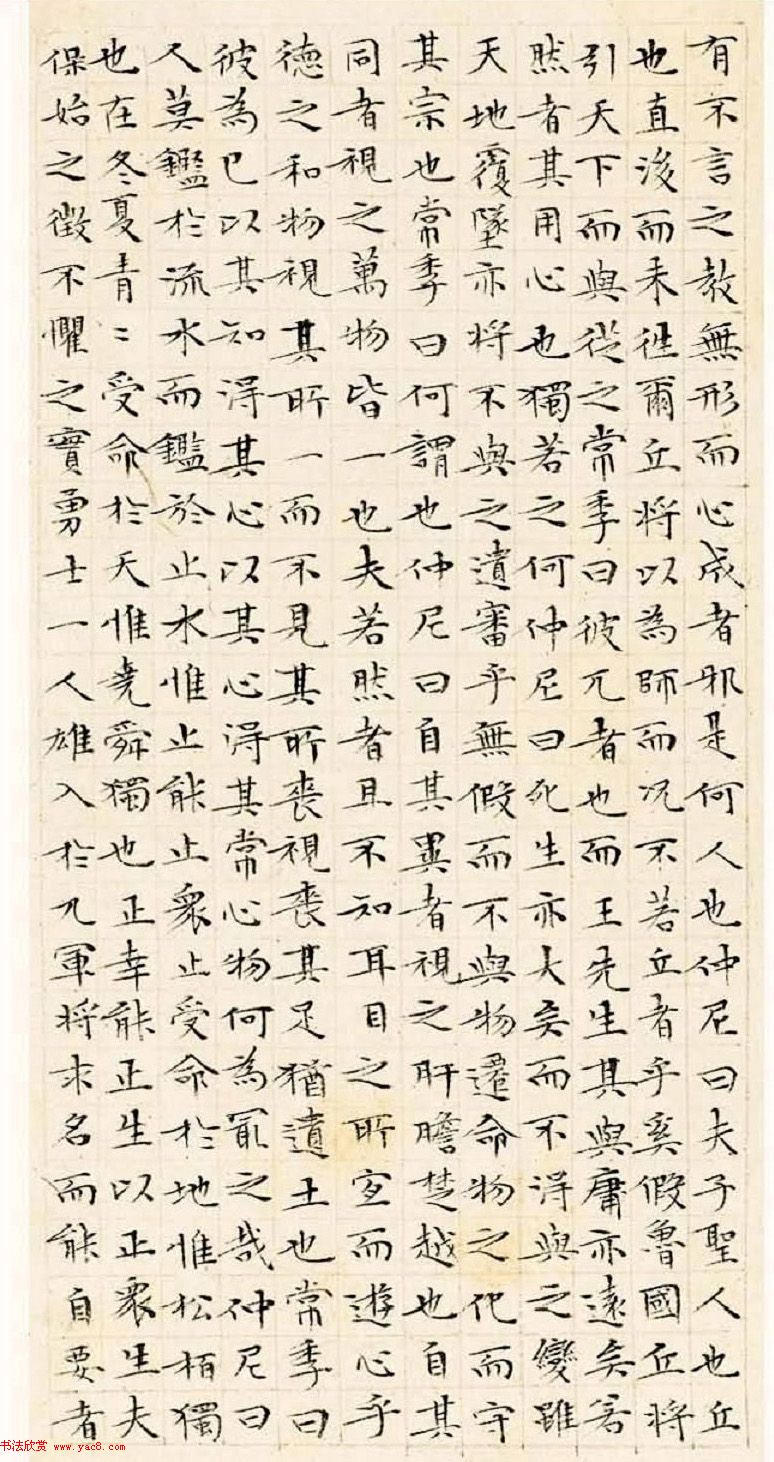 有不言之教無形而心成者邪是何人也仲尼曰夫子聖人也丘
也直後而未徃爾丘将以為師而况不若丘者乎奚假魯國丘将
引天下而與從之常季曰彼兀者也而王先生其與庸亦遠矣若
然者其用心也獨若之何仲尼曰死生亦大矣而不得與之變雖
天地覆墜亦将不與之遺審乎無假而不與物遷命物之化而守
其宗也常季曰何謂也仲尼曰自其異者視之肝膽楚越也自其
同者視之萬物皆一也夫若然者且不知耳目之所宜而遊心乎
德之和物視其所一而不見其所喪視喪其足猶遺土也常季曰
彼為己以其知得其心以其心得其常心物何為冣之哉仲尼曰
人莫鑑於流水而鑑於止水惟止能止衆止受命於地惟松栢獨
也在冬夏青〻受命於天惟堯舜獨也正幸能正生以正衆生夫
保始之徵不懼之實勇士一人雄入於九軍将求名而能自要者
书法欣赏 www.yac8.com